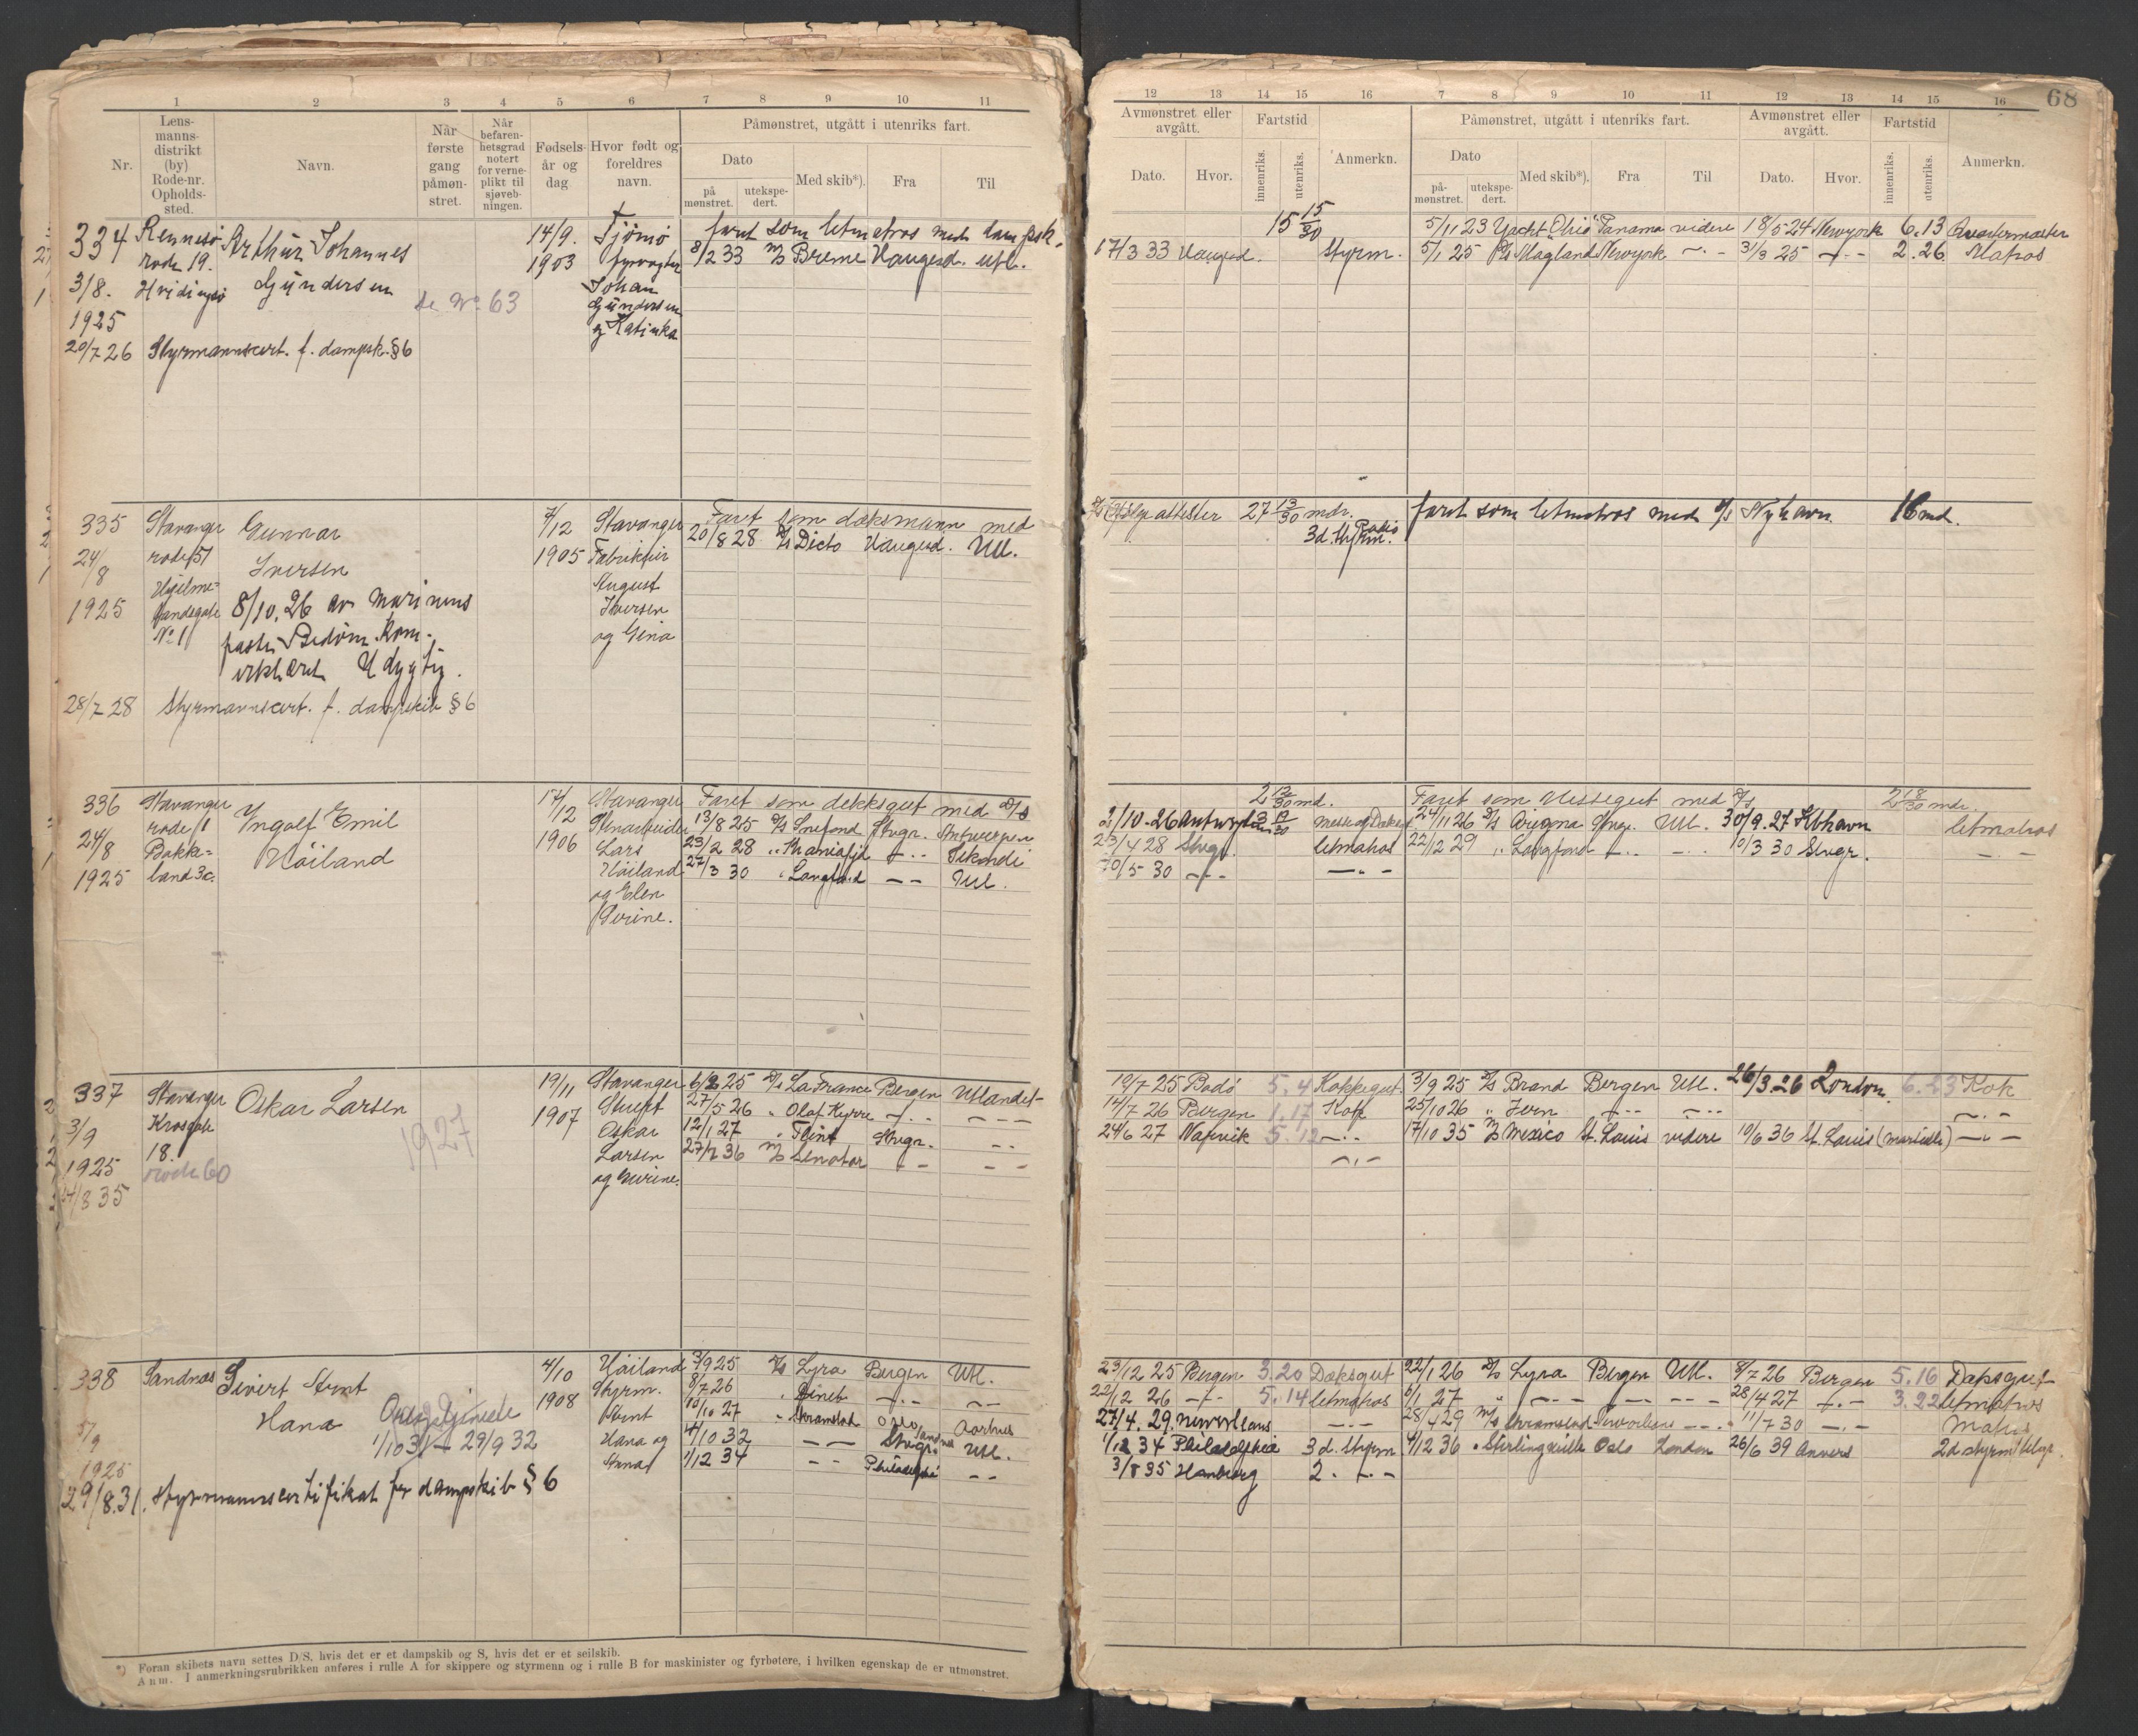 1 2 3 4 5 6 7 8 9 10 11
Nr.
Lens-
manns-
distrikt
(by)
Rode-nr.
Opholds-
sted.
Navn.
Når
første
gang
påmøn-
stret.
Når
befaren-
hetsgrad
notert
for verne-
plikt til
sjøveb-
ningen.
Fødsels-
år og
dag.
Hvor født og
foreldres
navn.
Påmønstret, utgått i utenriks fart.
Dato
på
mønstret.
utekspe-
dert.
Med skib*).
Fra
Til
334 Rennesø Arthur Johannes 14/9. Tjømø faret som letmatros med dampsk.
rode 19. Gundersen 1903 fyrvogter 8/2 33 M/S Breme Haugesd. Utl.
3/8. Hvidingsø se No. 63 Johan
1925 Gundersen
og Katinka
20/7 26 Styrmannscert. f. dampsk. §6
335 Stavanger Gunnar 7/12 Stavanger Faret som dæksmann med
24/8 rode 51 Iversen 1905 Fabrikkeier 20/8 28 D/S Dicto Haugesd. Utl.
Hjelme- August
1925 landsgate 8/10.26 av Marinens Iversen
No 1 faste Bedøm. Kom. og Gina
erklært Udygtig.
28/7 28 Styrmannscert. f. dampskib §6
336 Stavanger Yngolf Emil 17/12 Stavanger Faret som dekksgut med D/S
24/8 rode 1 Høiland 1906 Stenarbeider 13/8 25 D/S Snefond Stvgr. Antwerpen
Bakke- Lars 23/2 28 " Kraniafjd -"-
1925 land 3c. Høiland 27/3 30 " Langfond -- Utl.
og Elen
Serine.
337 Stavanger Oskar Larsen 19/11 Stavanger 6/2 25 D/S La France Bergen Utlandet
3/9 Krosgate 1927 1907 Stuert 27/5 26 " Olaf Kyrre -"- ---
18. Oskar 12/1 27 " Flint Stvgr. --
1925 rode 60 Larsen 27/7 36 M/S Senator -- --
/8 35 og Gurine.
338 Sandnes Sivert Arnt 4/10 Høiland 3/9 25 D/S Lyra Bergen Utl.
Hana 1908 Styrm. 8/7 26 " -"- --
5/9 Arnt 10/10 27 " Skramstad Oslo Aarhus
1925 1/10 31 - 29/9 32 Hana og 14/10 32 -- Stvgr. Sandnes Utl.
Anna 1/12 34 -- Philadelphia --
29/8.31. Styrmannscertifikat for dampskib § 6
*) Foran skibets navn settes D/S, hvis det er et dampskib og S, hvis det er et seilskib.
Anm. I anmerkningsrubrikken anføres i rulle A for skippere og styrmenn og i rulle B for maskinister og fyrbøtere, i hvilken egenskap de er utmønstret.
68
12 13 14 15 16 7 8 9 10 11 12 13 14 15 16
Avmønstret eller
avgått.
Dato.
Hvor.
Fartstid
innenriks.
utenriks.
Anmerkn.
Påmønstret, utgått i utenriks fart.
Dato
på-
mønstret.
utekspe-
dert.
Med skib*).
Fra
Til
Avmønstret eller
avgått.
Dato.
Hvor.
Fartstid
innenriks.
utenriks.
Anmerkn.
15 15/30 5/11 23 Yacht "Ohio" Panama videre 18/5 24 Newyork 6.13 Quartermaster
17/3 33 Haugesd. Styrm. 5/1 25 D/S Magland Newyork -"- 31/3 25 -"- 2.26 Matros
attester 27 13/30 mdr. faret som letmatros med D/S Nyhavn 16 md.
3d. Styrm. Radio
2 12/30 md. Faret som Messegut med D/S 2 18/30 mdr.
2/10.26 Antwerpen Messe og Daksgut 24/11 26 D/S Stvgr. Utl. 30/9.27 Kbhavn letmatros
23/4 28 Stvgr. letmatros 22/12 29 " Langfond -"- -"- 10/3 30 Stvgr. -"-
20/5 30 -"- -"-
19/7 25 Bodø 5.4 Kokkegut 3/9 25 D/S Brand Bergen Utl. 26/3.26 London. 6.23 Kok
14/7 26 Bergen 1.17 Kok 25/10 26 " Jern -"- -"- -"-
24/6 27 Narvik 5.12 -"- 17/10 35 M/S Mexico St. Louis videre 10/6 36 St. Louis (Marseille) -"-
-"-
23/12 25 Bergen 3.20 Dæksgut 22/1 26 D/S Lyra Bergen Utl. 8/7 26 Bergen 5.16 Daksgut
22/12 26 -"- 5.14 letmatros 6/1 27 " -"- -"- -"- 28/4 27 -"- 3.22 letmatros
27/4.29. Neworleans -"- 28/4 29 M/S Skramstad Neworleans -"- 11/7 30 -"- Matros
1/12 34 Philadelphia 3d. Styrm 4/12 36 " Stirlingville Oslo London 26/6 39 Anvers 2d styrm
3/8 35 Hamburg 2. -"-